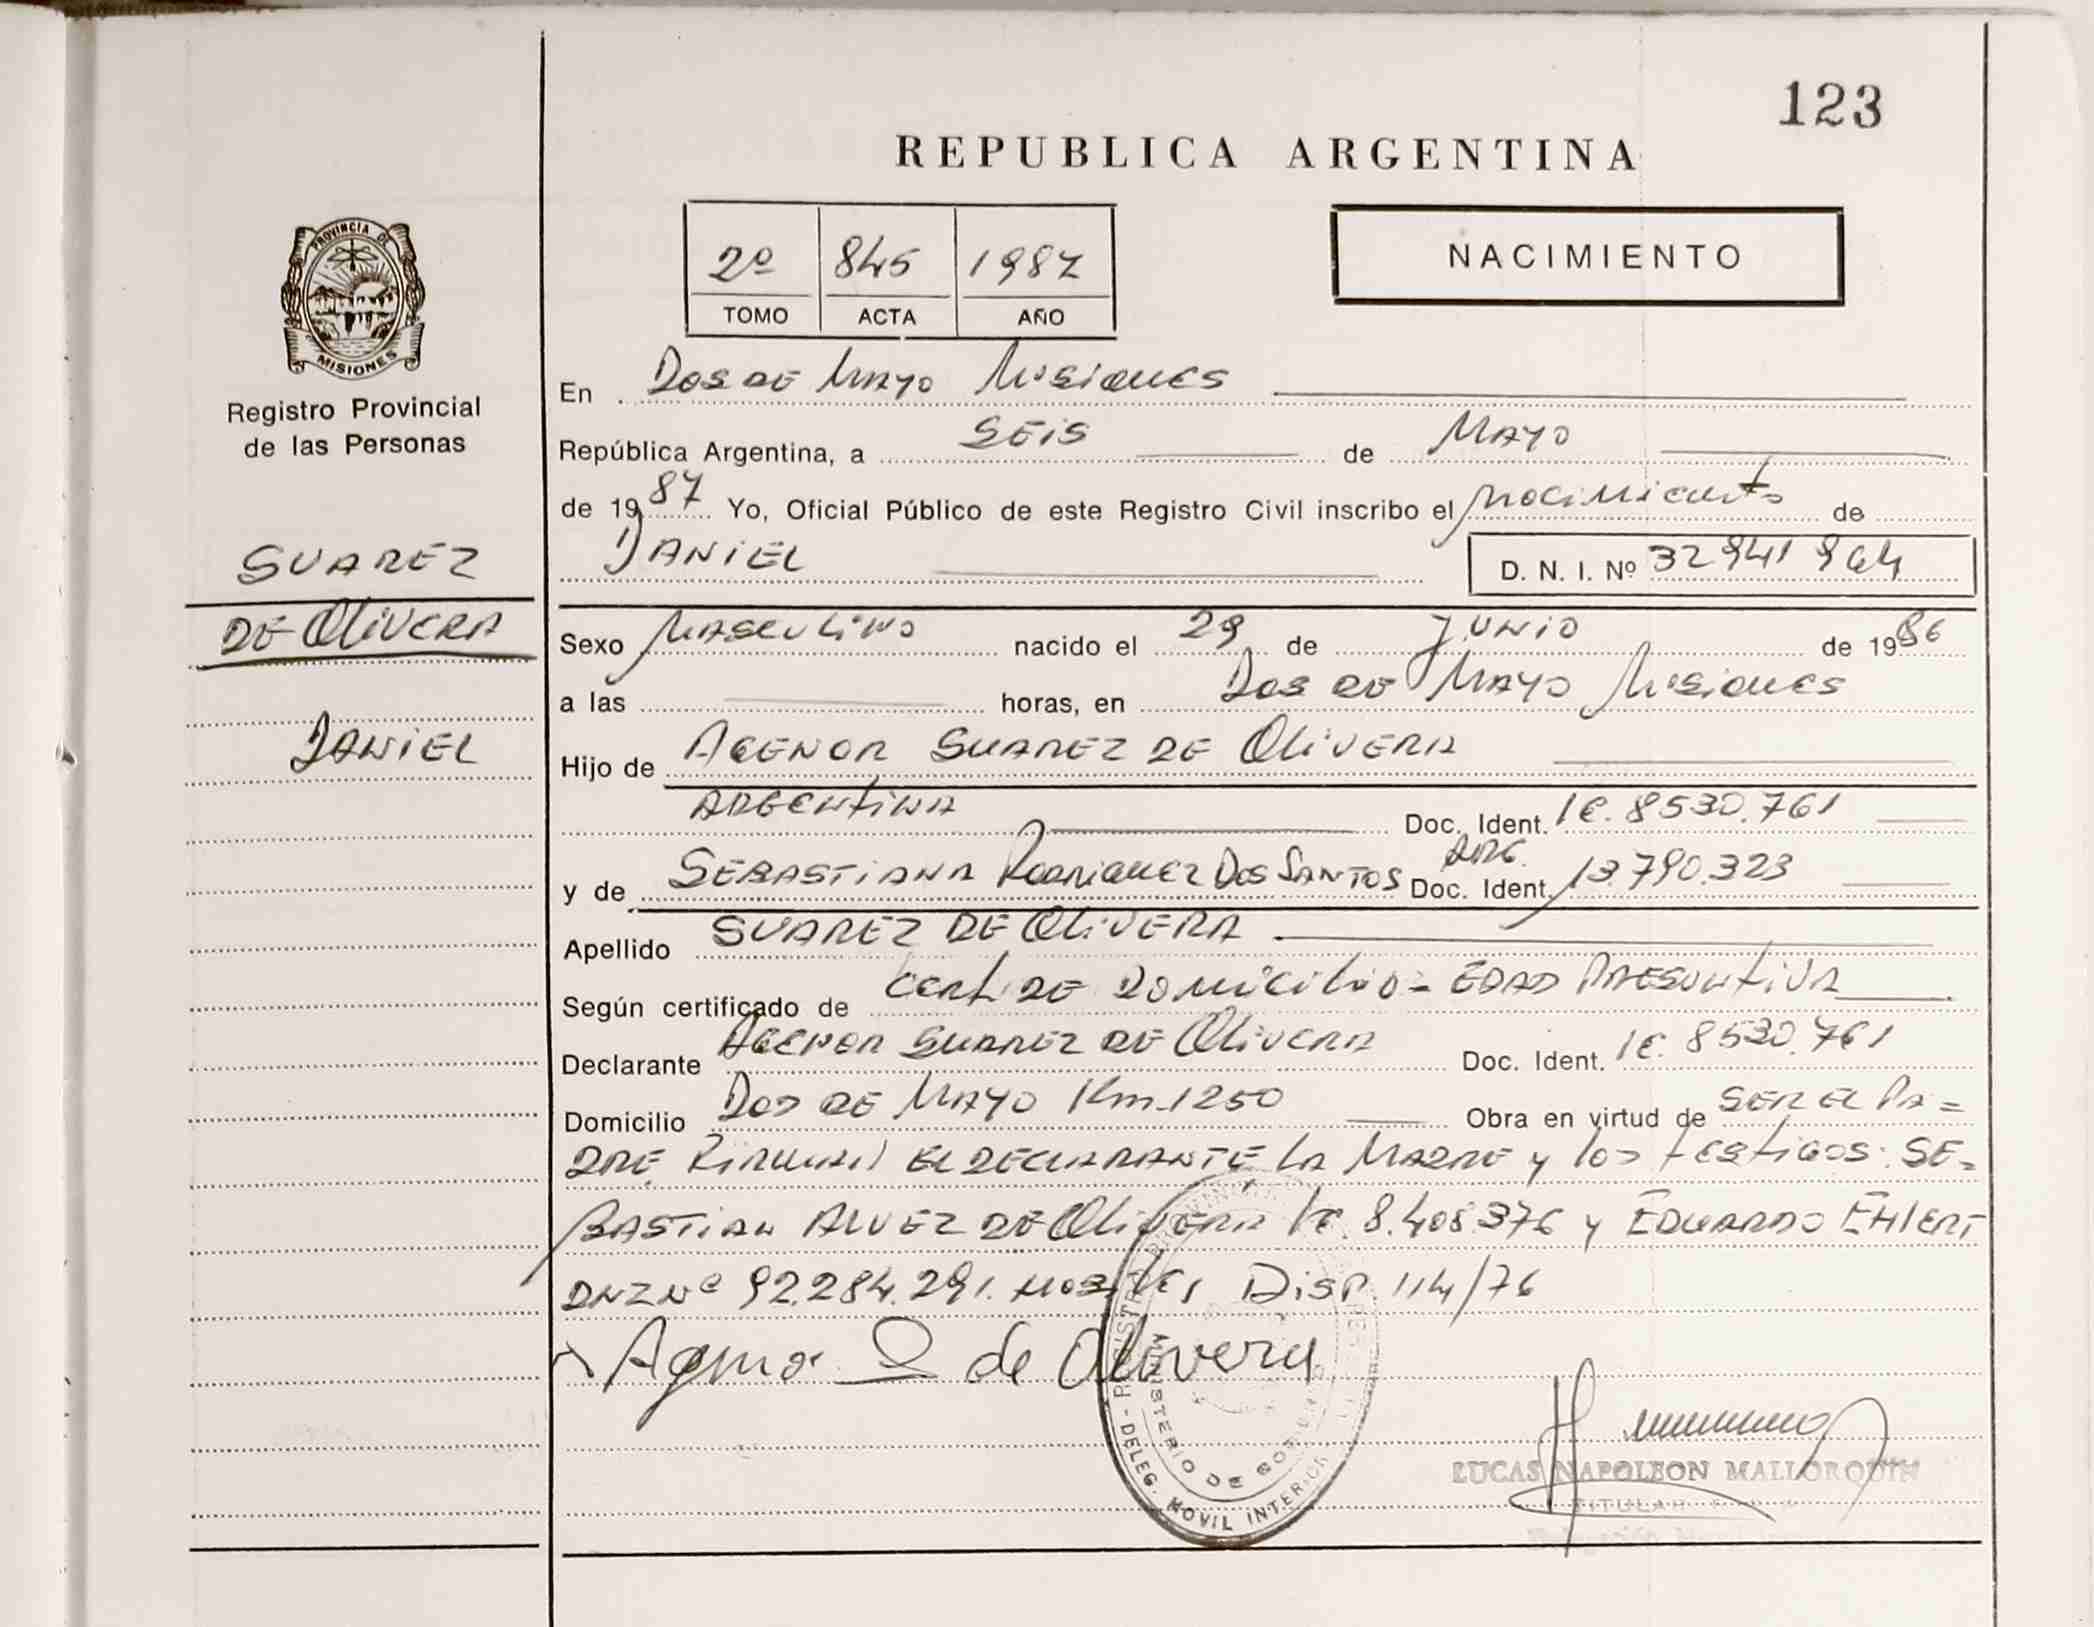 123
REPUBLICA ARGENTINA
2º 845 1987
TOMO ACTA AÑO
NACIMIENTO
PROVINCIA DE
MISIONES
Registro Provincial
de las Personas
SUAREZ
DE OLIVERA
DANIEL
En DOS DE MAYO MISIONES
República Argentina, a SEIS de MAYO
de 1987 Yo, Oficial Público de este Registro Civil inscribo el nacimiento de
DANIEL D. N. I. Nº 32941964
Sexo MASCULINO nacido el 29 de JUNIO de 1986
a las horas, en DOS DE MAYO MISIONES
Hijo de AGENOR SUAREZ DE OLIVERA
ARGENTINA Doc. Ident. 8530.761
y de SEBASTIANA RODRIGUEZ DOS SANTOS ARG. Doc. Ident. 13.790.323
Apellido SUAREZ DE OLIVERA
Según certificado de CERT. DE DOMICILIO = EDAD PRESUNTIVA
Declarante AGENOR SUAREZ DE OLIVERA Doc. Ident. 8530.761
Domicilio DOS DE MAYO Km 1250 Obra en virtud de SER EL PA=
DRE FIRMAN EL DECLARANTE LA MADRE y los testigos: SE=
BASTIAN ALVEZ DE OLIVERA 8.408.376 y EDUARDO EHLERT
DNI Nº 92.284.291. Disp. 114/76
Agenor S de Olivera
REGISTRO
MINISTERIO DE GOBIERNO
DELEG. MOVIL INTERIOR
LUCAS NAPOLEON MALLORQUIN
TITULAR